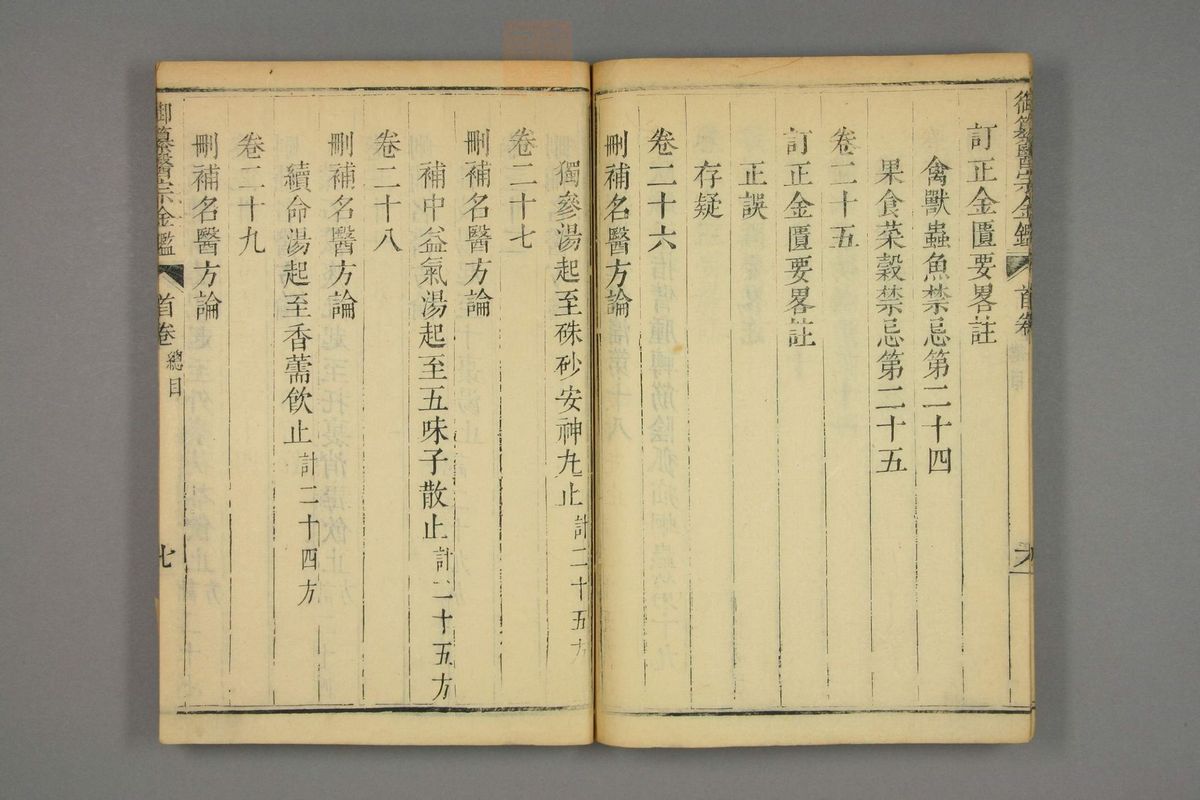 御纂醫宗金鑑 首卷
訂正金匱要畧註
禽獸蟲魚禁忌第二十四
果食菜穀禁忌第二十五
卷二十五
訂正金匱要畧註
正誤
存疑
卷二十六
刪補名醫方論
獨參湯起至硃砂安神九止 計二十五方
卷二十七
刪補名醫方論
補中益氣湯起至五味子散止 計二十五方
卷二十八
刪補名醫方論
續命湯起至香薷飲止 計二十四方
卷二十九
刪補名醫方論
御纂醫宗金鑑 首卷 總目 七